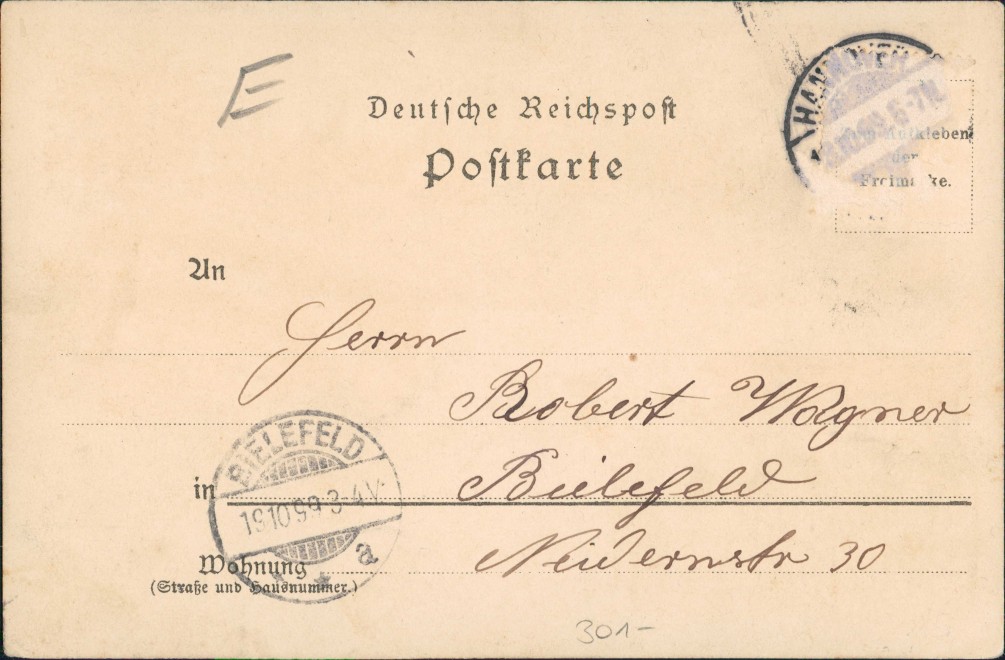 E
Deutsche Reichspost
Postkarte
HANNOVER
6-7N.
Zum Aufkleben
der
Freimarke.
An
Herrn
Robert Wagner
BIELEFELD
in Bielefeld
19.10.99.3-4V.
a
Neidernstr 30
Wohnung
(Straße und Hausnummer.)
301-